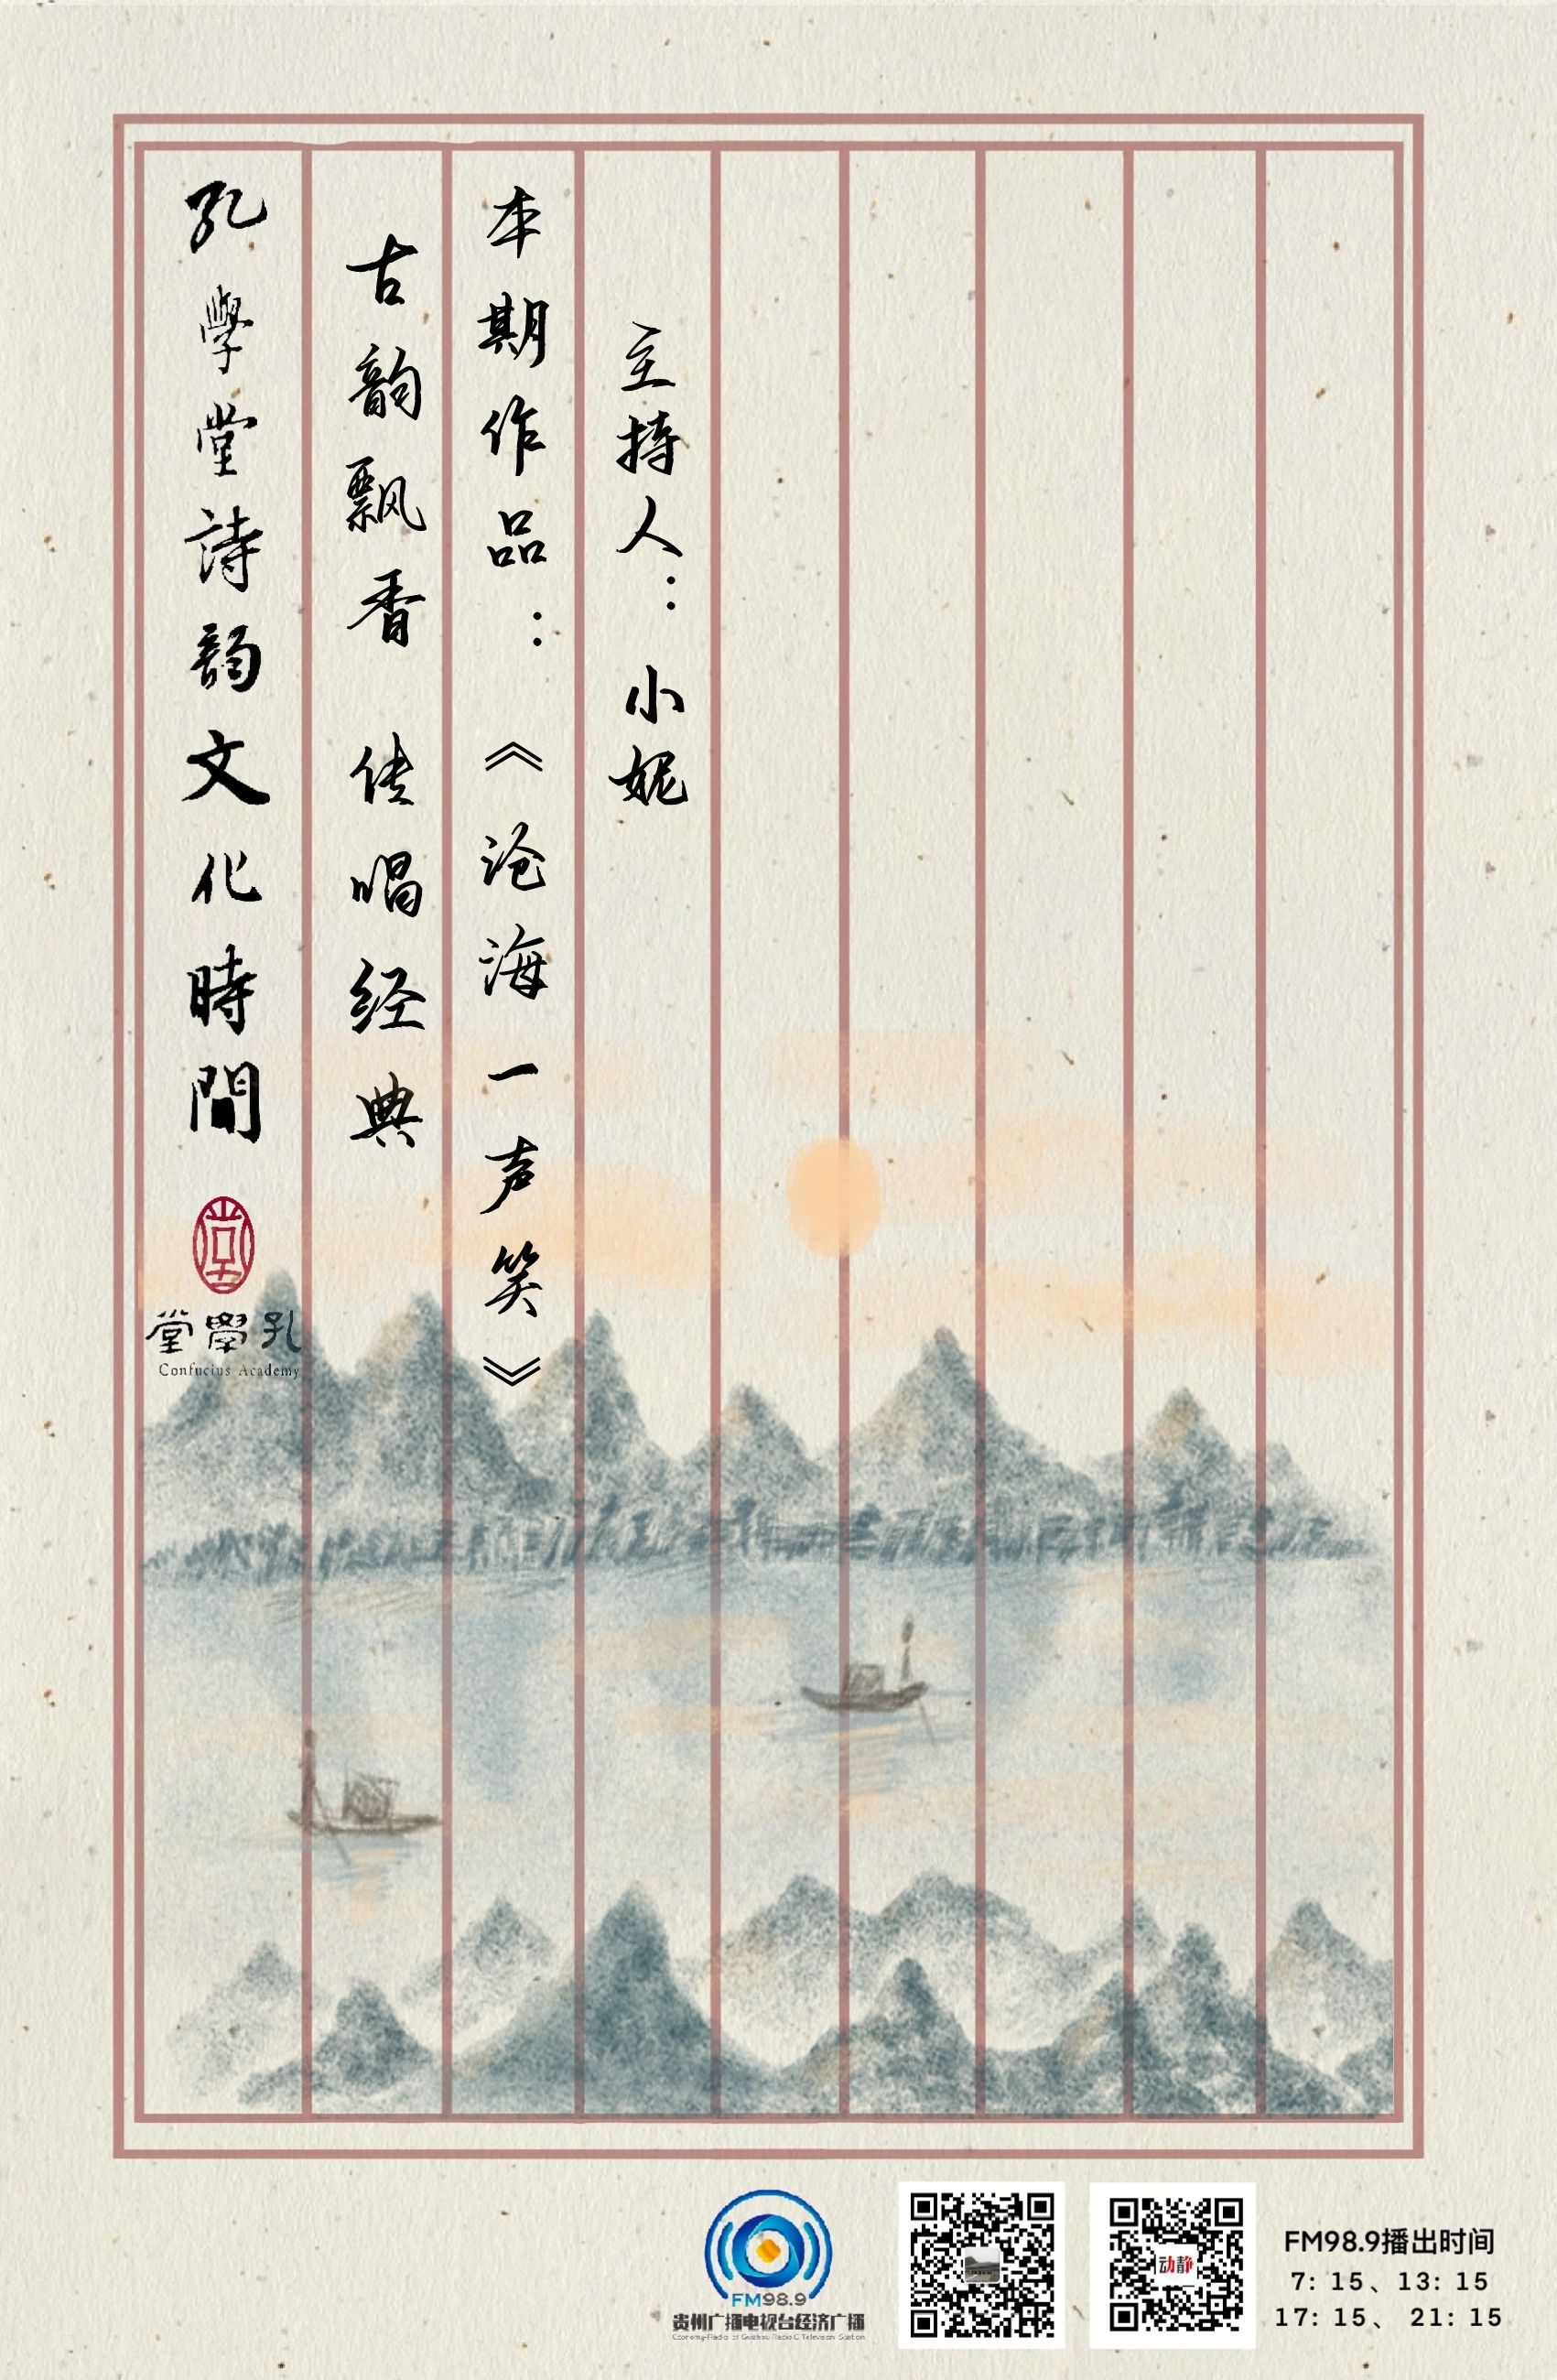 孔學堂詩韵文化時間
古韵飘香 传唱经典
本期作品：《沧海一声笑》
主持人：小妮
堂學孔
Confucius Academy
FM98.9
贵州广播电视台经济广播
Economy-Radio of Guizhou Radio & Television Station
动静
FM98.9播出时间
7: 15、13: 15
17: 15、 21: 15